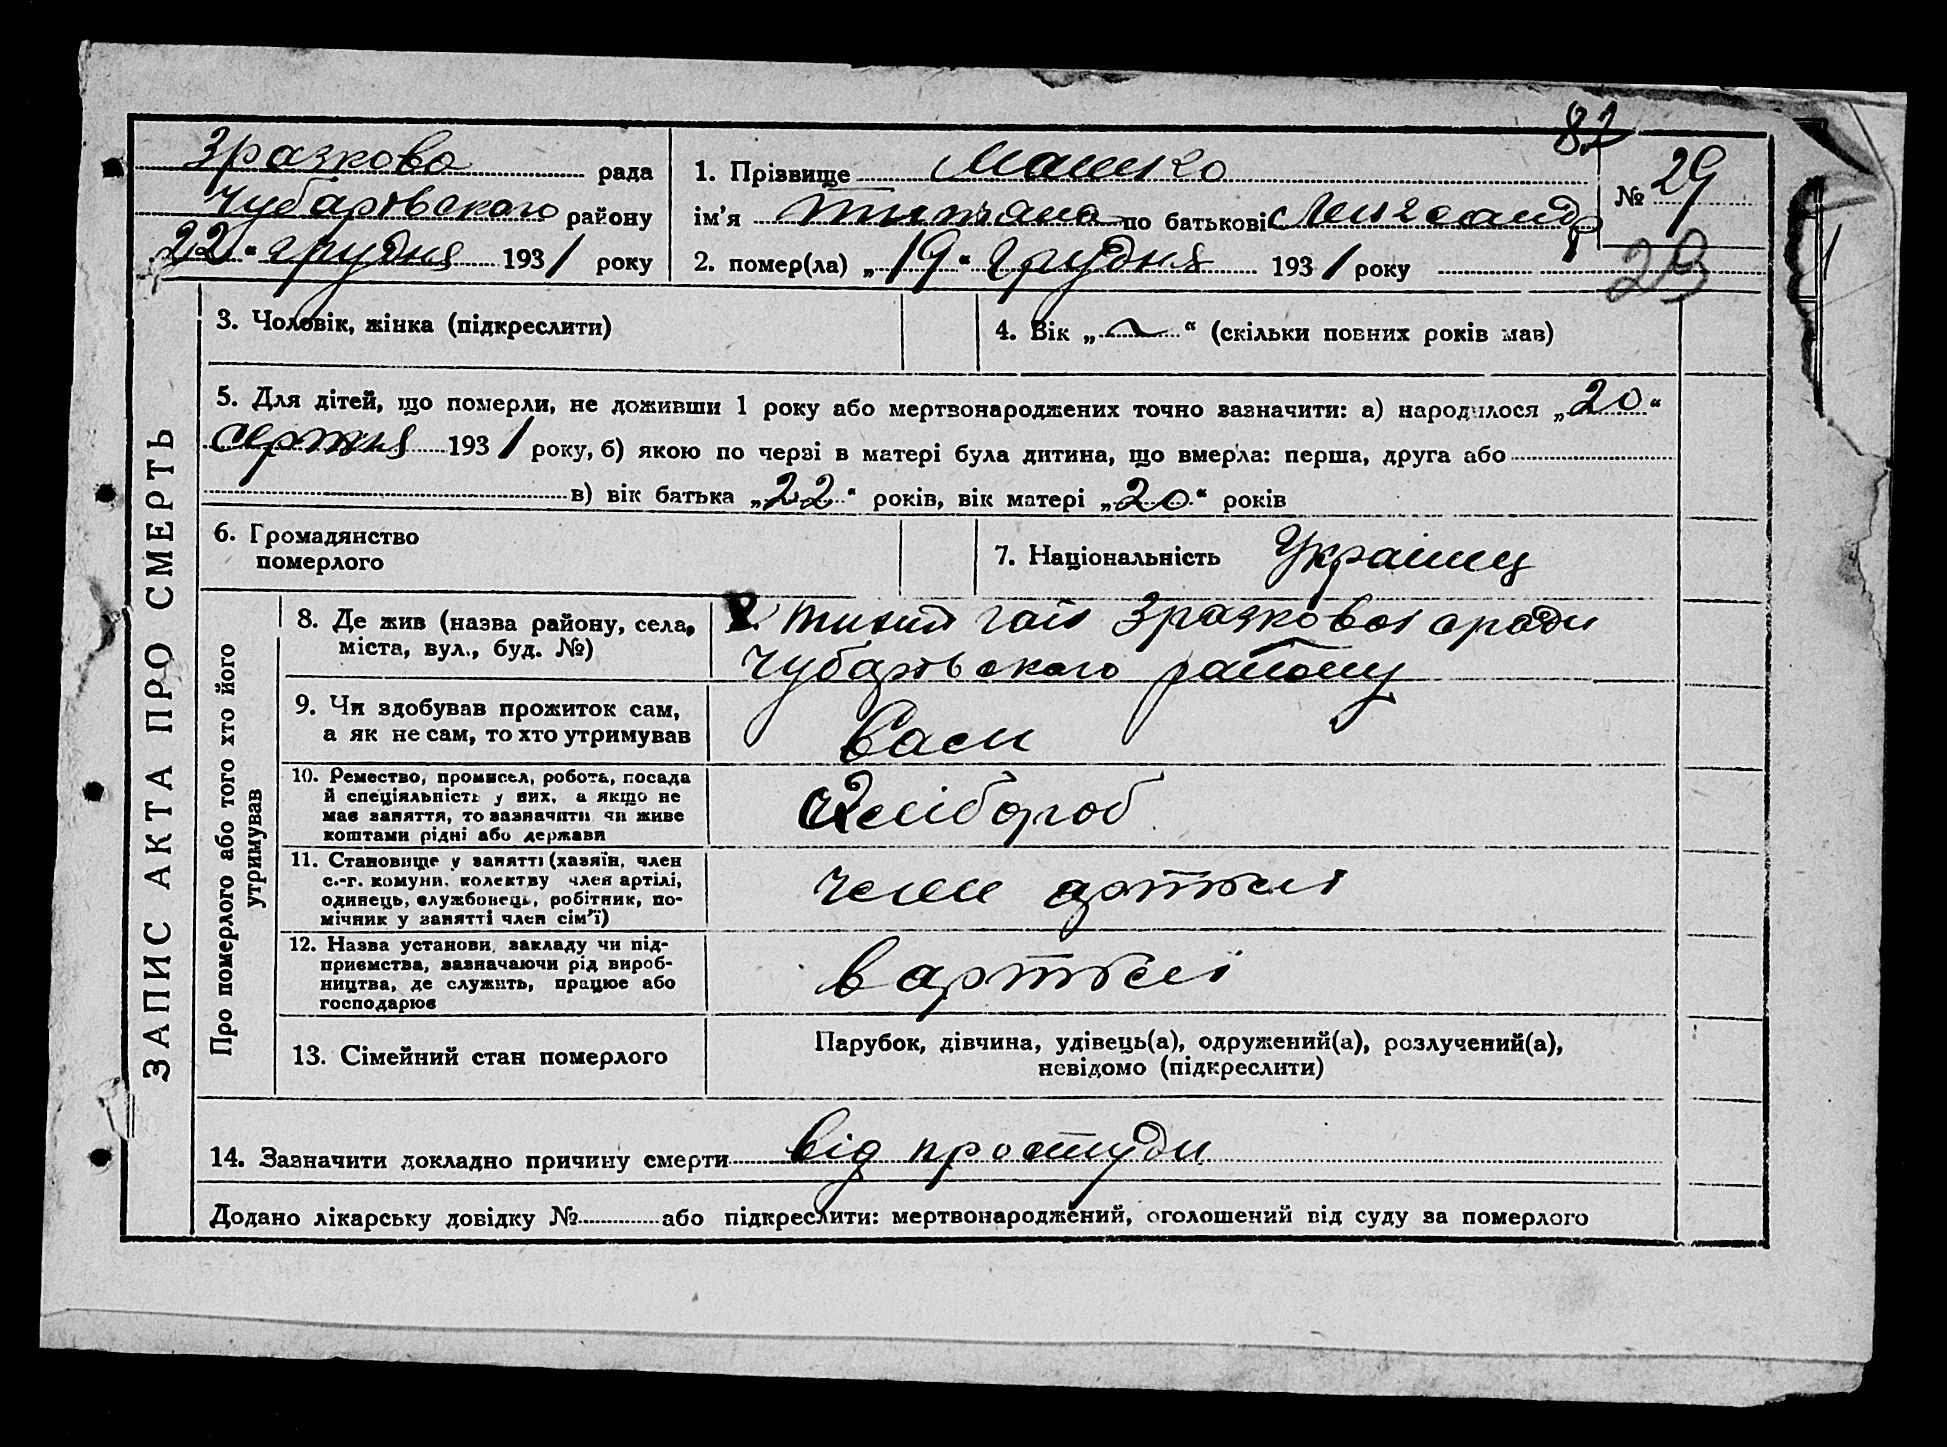 82
Зразкова рада
Чубарівського району
22 " грудня 1931 року
1. Прізвище Машко
ім'я по батькові
2. помер(ла) „ 19 " грудня 1931 року
№ 29
3. Чоловік, жінка (підкреслити)
4. Вік „ " (скільки повних років мав)
5. Для дітей, що померли, не доживши 1 року або мертвонароджених точно зазначити: а) народилося „ 20 "
серпня 1931 року, б) якою по черзі в матері була дитина, що вмерла: перша, друга або
в) вік батька „ 22 " років, вік матері „ 20 " років
6. Громадянство
померлого
7. Національність Українец
ЗАПИС АКТА ПРО СМЕРТЬ
Про померлого або того хто його
утримував
8. Де жив (назва району, села,
міста, вул., буд. №)
Тихий гай Зразкової сради
Чубарівського району
9. Чи здобував прожиток сам,
а як не сам, то хто утримував
10. Ремество, промисел, робота, посада
й спеціяльність у них, а якщо не
має заняття, то зазначити чи живе
коштами рідні або держави
хлібороб
11. Становище у занятті (хазяїн, член
с.-г. комуни, колективу член артілі,
одинець, службовець, робітник, по-
мічник у занятті член сім'ї)
член артілі
12. Назва установи, закладу чи під-
приємства, зазначаючи рід вироб-
ництва, де служить, працює або
господарює
в артілі
13. Сімейний стан померлого
Парубок, дівчина, удівець(а), одружений(а), розлучений(а),
невідомо (підкреслити)
14. Зазначити докладно причину смерти від простуди
Додано лікарську довідку № або підкреслити: мертвонароджений, оголошений від суду за померлого